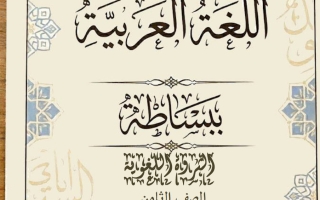 اللُّغَةُ العَرَبِيَّةِ
بِبَسَاطَةٍ
الثروة اللغوية
الصف الثامن